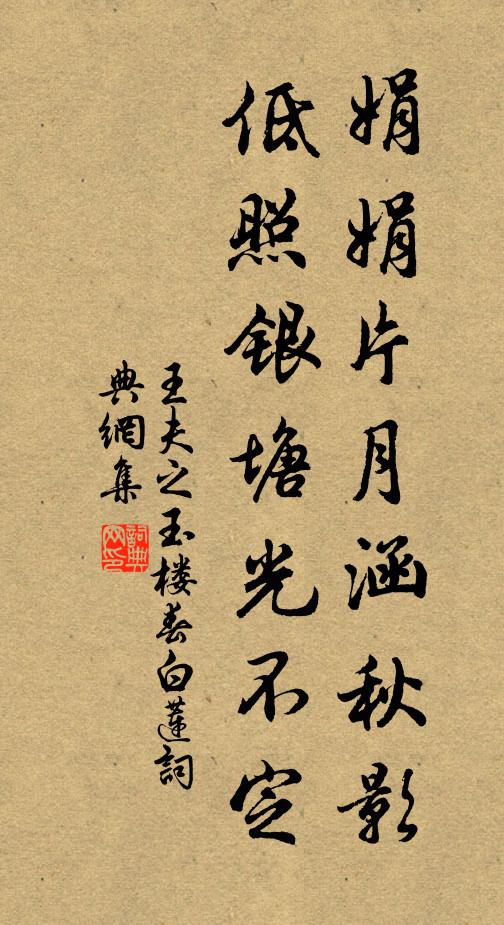 娟娟片月涵秋影
低照銀塘光不定
王夫之玉楼春白蓮詞
典網集
詞典
网印